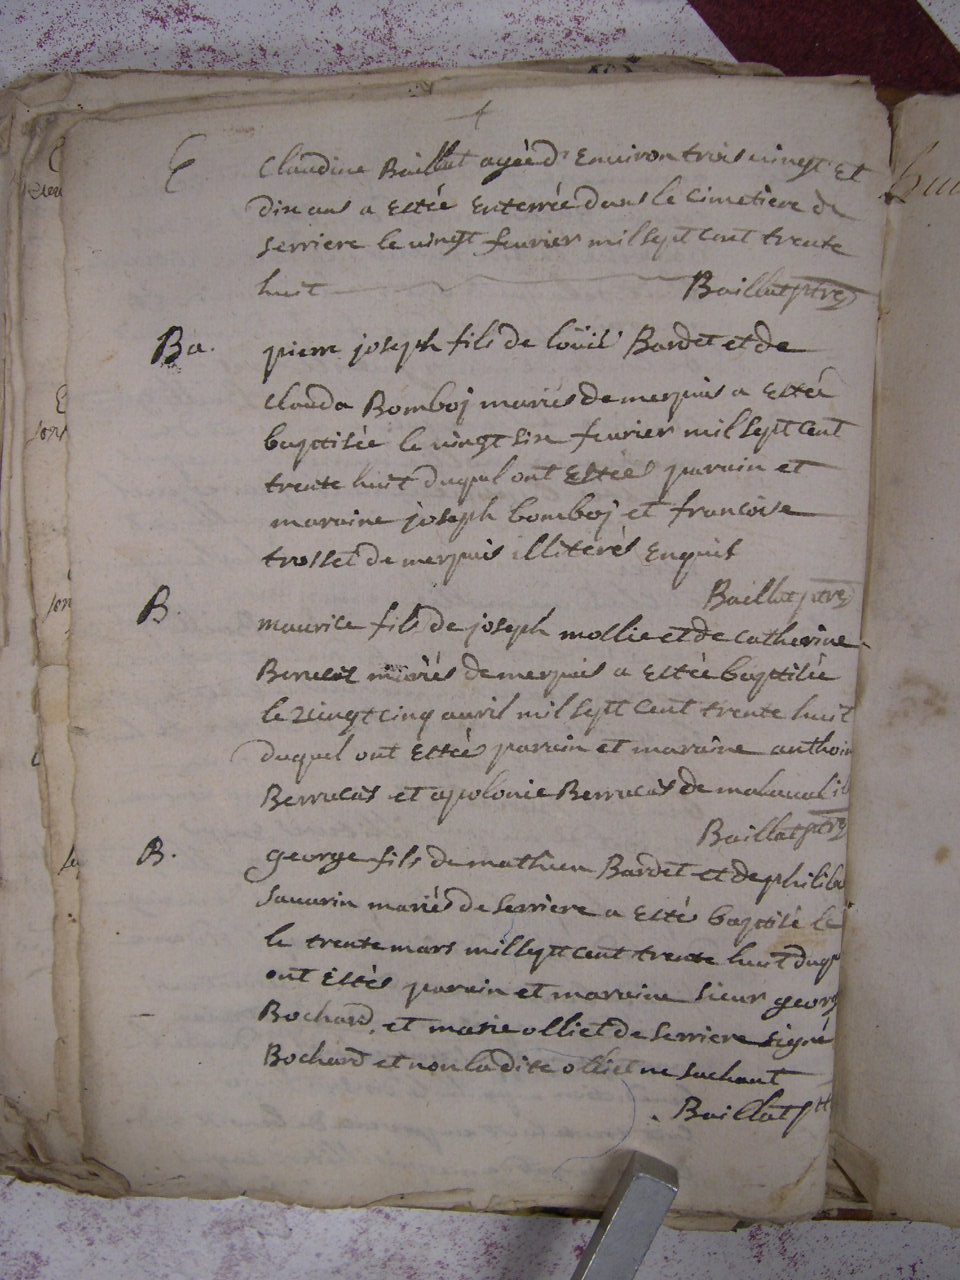 E Claudine Baillat agée d'Environ trois vingt Et
dix ans a Estée Enterrée dans le Cimetiere de
Serriere le vingt feurier mil sept cent trente
huit Baillat ptre
Ba. pierre joseph fils de loüis Bardet et de
Clauda Bomboj mariés de merpuis a Estée
baptisée le vingt six feurier mil sept cent
trente huit duquel ont Estées parain et
maraine joseph bomboj et francoise
trosset de merpuis illiterés Enquis
Baillat ptre
B. maurice fils de joseph mollie et de catherine
mariés de merpuis a Estée baptisée
le vingt cinq auril mil sept cent trente huit
duquel ont Estées parain et maraine anthoin
Berrucas et apolonie Berrucas de
Baillat ptre
B. george fils de mathieu Bardet et de philib
Sauarin mariés de Serriere a Estés baptisé le
le trente mars mil sept cent trente huit duqu
ont Estés parain et maraine Sieur georg
Bochard et marie olliet de Serriere signé
Bochard et non ladite olliet ne sachant
Baillat ptr